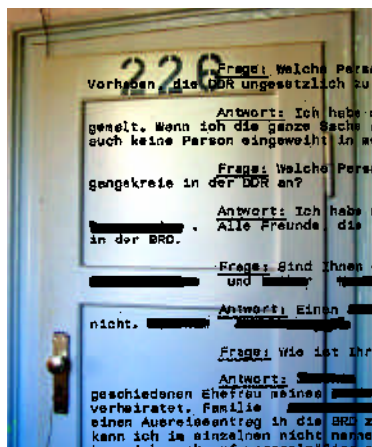 226
Frage: Welche Pers
Vorhaben, die DDR ungesetzlich zu
Antwort: Ich habe
gemelt. Wenn ich die ganze Sache
auch keine Person eingeweiht in m
Frage: Welche Pers
gangskreis in der DDR an?
Antwort: Ich habe
. Alle Freunde, die
in der BRD.
Frage: Sind Ihnen
und
Antwort: Einen
nicht.
Frage: Wie ist Ihr
Antwort:
geschiedenen Ehefrau meines
verheiratet. Familie
einen Ausreiseantrag in die BRD
kann ich im einzelnen nicht